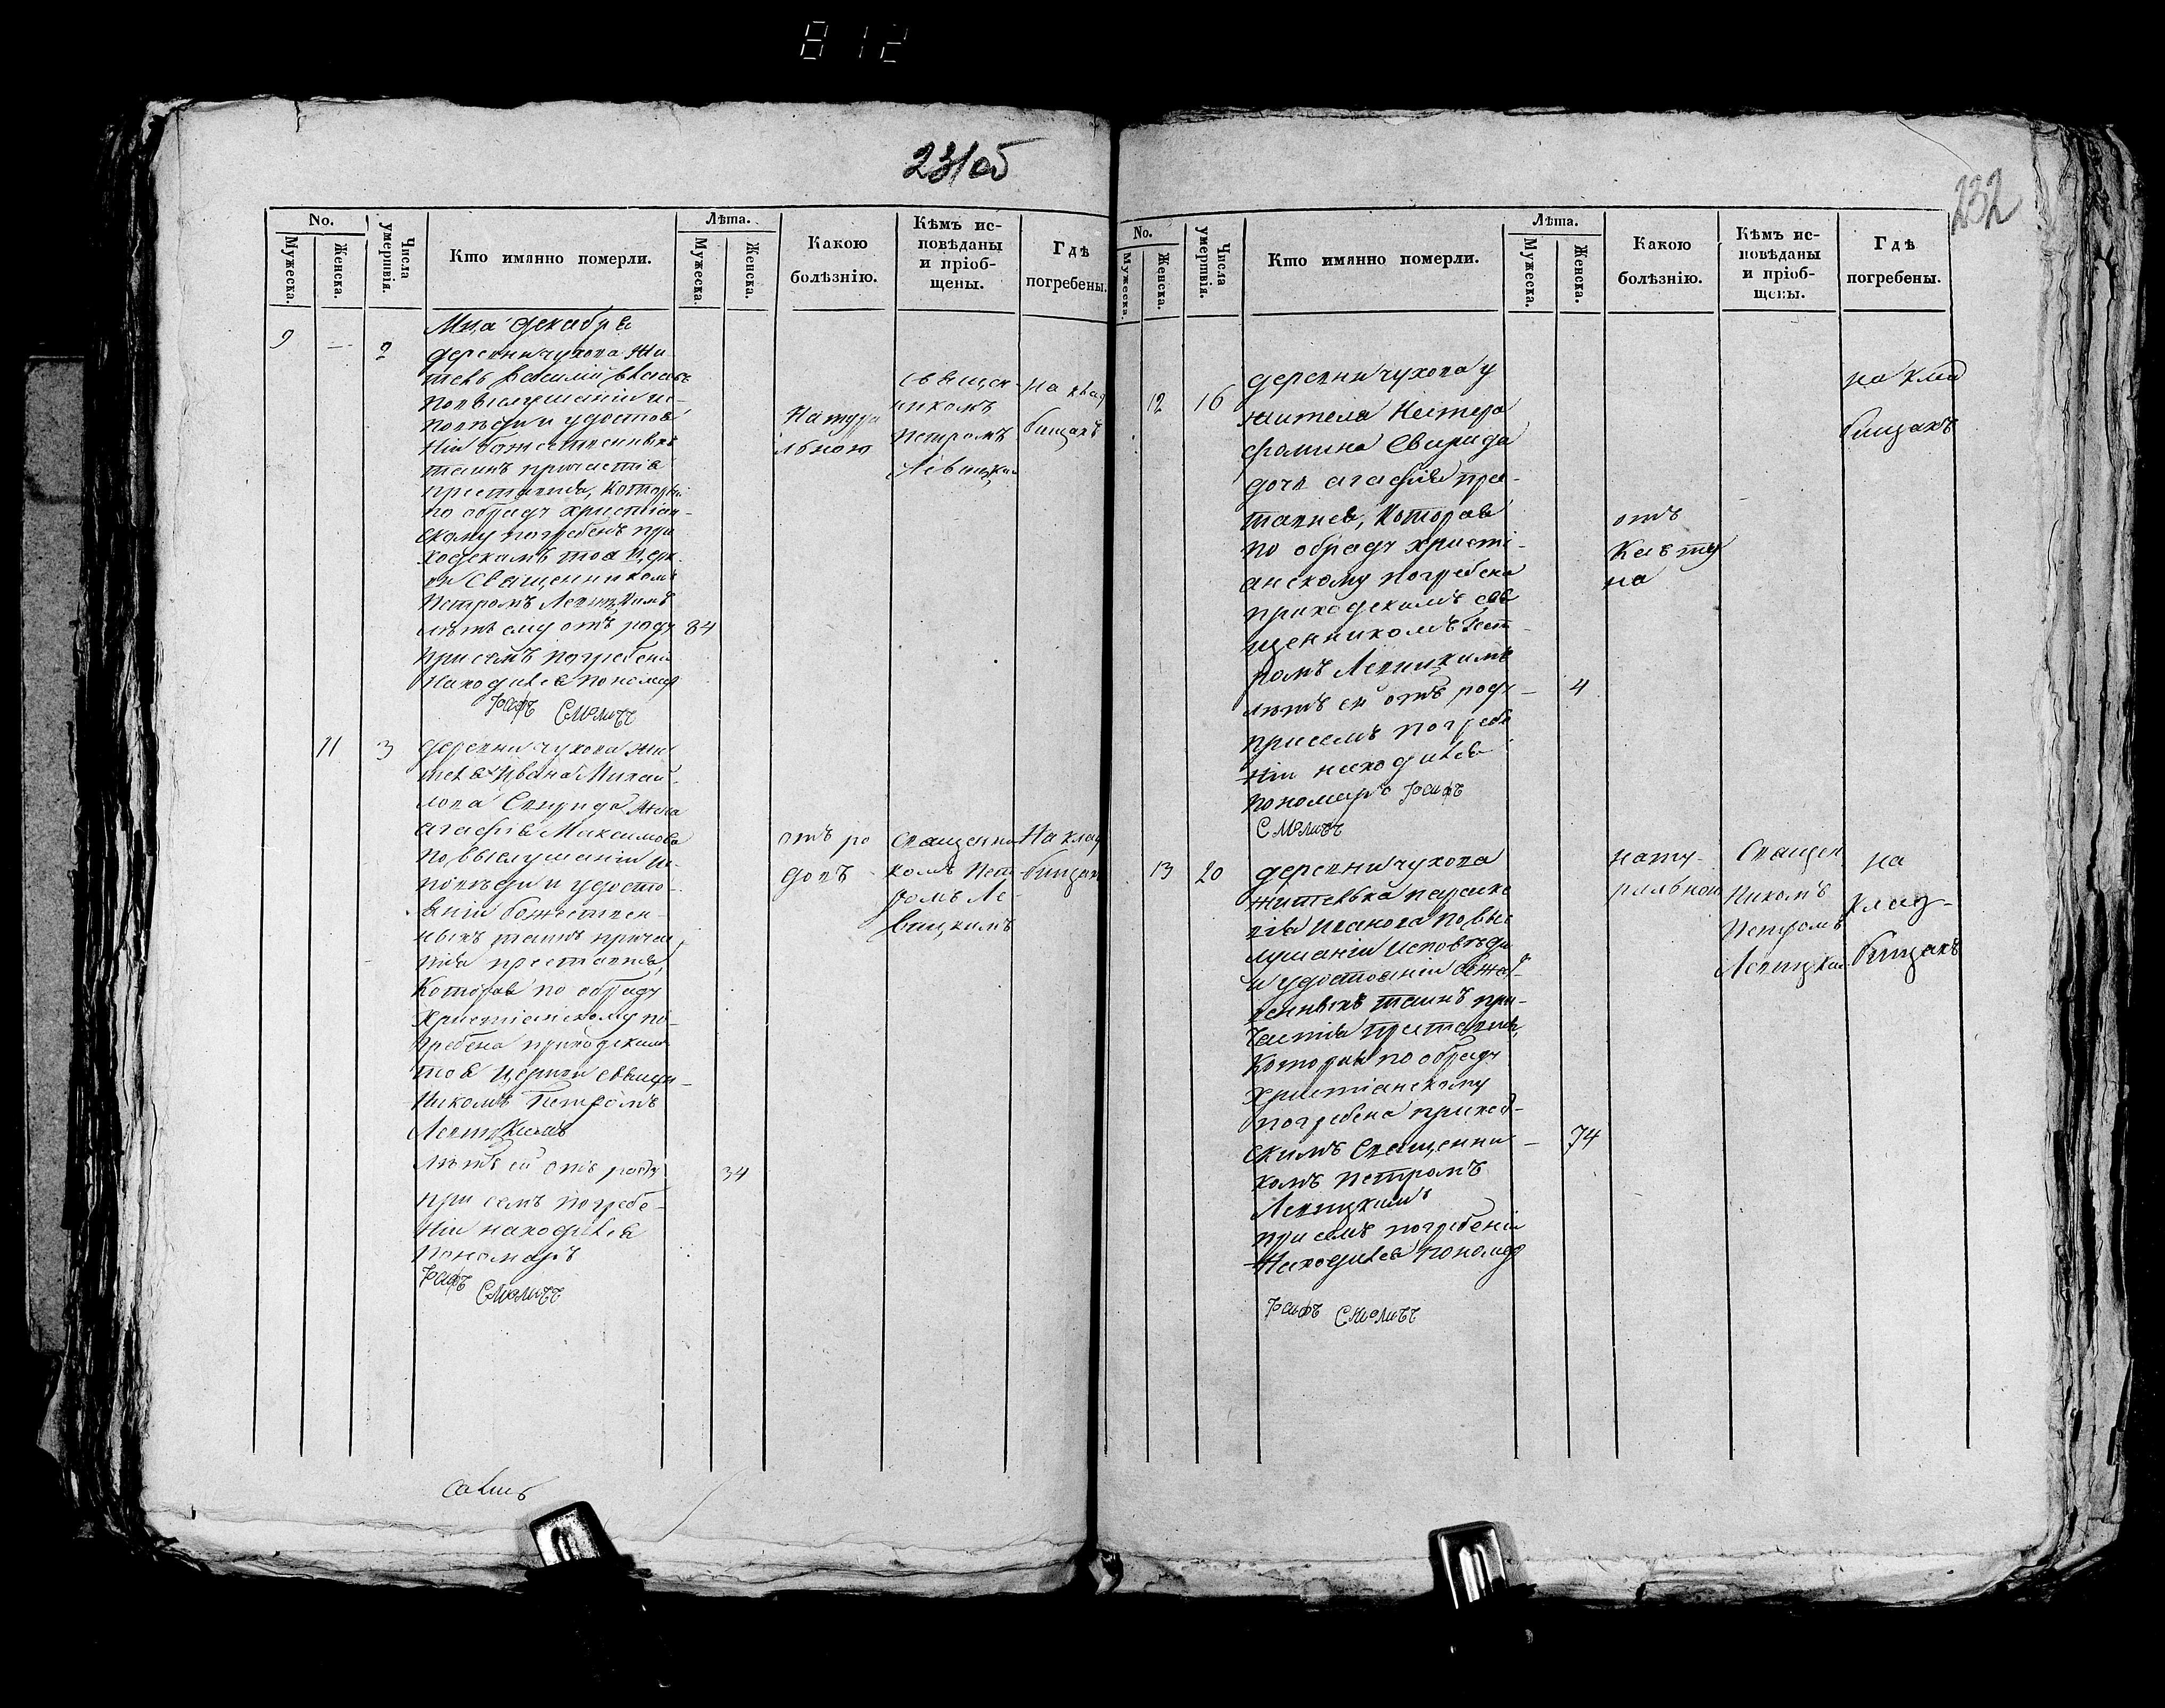 812
231об
No.
Мужеска.
Женска.
Числа умертвія.
Кто имянно померли.
Лѣта.
Мужеска.
Женска.
Какою
болѣзнію.
Кѣмъ ис-
повѣданы
и пріоб-
щены.
Гдѣ
погребены.
Мца декабря
9 — 2 деревни чухова жи
тель Василій
по выслушаніи ис-
повѣди и удостое
ніи божественныхъ
таинъ причастія
преставися, который
по обряду христіан-
скому погребенъ при
ходскимъ тоя церк
ви Священникомъ
Петромъ Левицкимъ
лѣтъ ему отъ роду 84
при семъ погребени
находился пономар
Іоифъ Смоличъ
Натура
льною
священ
никомъ
Петромъ
Левицки
на клад
бищахъ
11 3 деревни чухова жи
теля Ивана Михай
лова Свирида жена
агафія Максимова
по выслушаніи ис-
повѣди и удосто-
яніи божествен-
ныхъ таинъ причас
тія преставися,
Которая по обряду
Христіанскому по-
гребена приходским
тоя церкви священ-
никомъ Петромъ
Левицкимъ
лѣтъ ей отъ роду 34
при семъ погребе-
ніи находился
Пономарь
Іоифъ Смоличъ
отъ ро
довъ
Священни
комъ Пет
ромъ Ле-
вицкимъ
На клад
бищахъ
232
No.
Мужеска.
Женска.
Числа умертвія.
Кто имянно померли.
Лѣта.
Мужеска.
Женска.
Какою
болѣзнію.
Кѣмъ ис-
повѣданы
и пріоб-
щены.
Гдѣ
погребены.
12 16 деревни чухова у
жителя Нестера
фомина Свирида
дочь агафія пре-
тавися, Которая
по обряду христі-
анскому погребена
приходскимъ свя
щенникомъ Пет
ромъ Левицкимъ
лѣтъ ей отъ роду — 4
при семъ погребе
ніи находился
Пономарь Іоифъ
Смоличъ
отъ
Кавту
на
на клад
бищахъ
13 20 деревни чухова
жителька параске
вія Иванова по выс
лушаніи Исповѣди
и удостояніи божест
венныхъ таинъ при-
частія преставися,
Которая по обряду
Христіанскому
погребена приход-
скимъ Священни — 74
комъ Петромъ
Левицкимъ
при семъ погребеніи
Находился пономар
Іоифъ Смоличъ
нату-
ральной
Священ
никомъ
Петромъ
Левицким
на
клад-
бищахъ